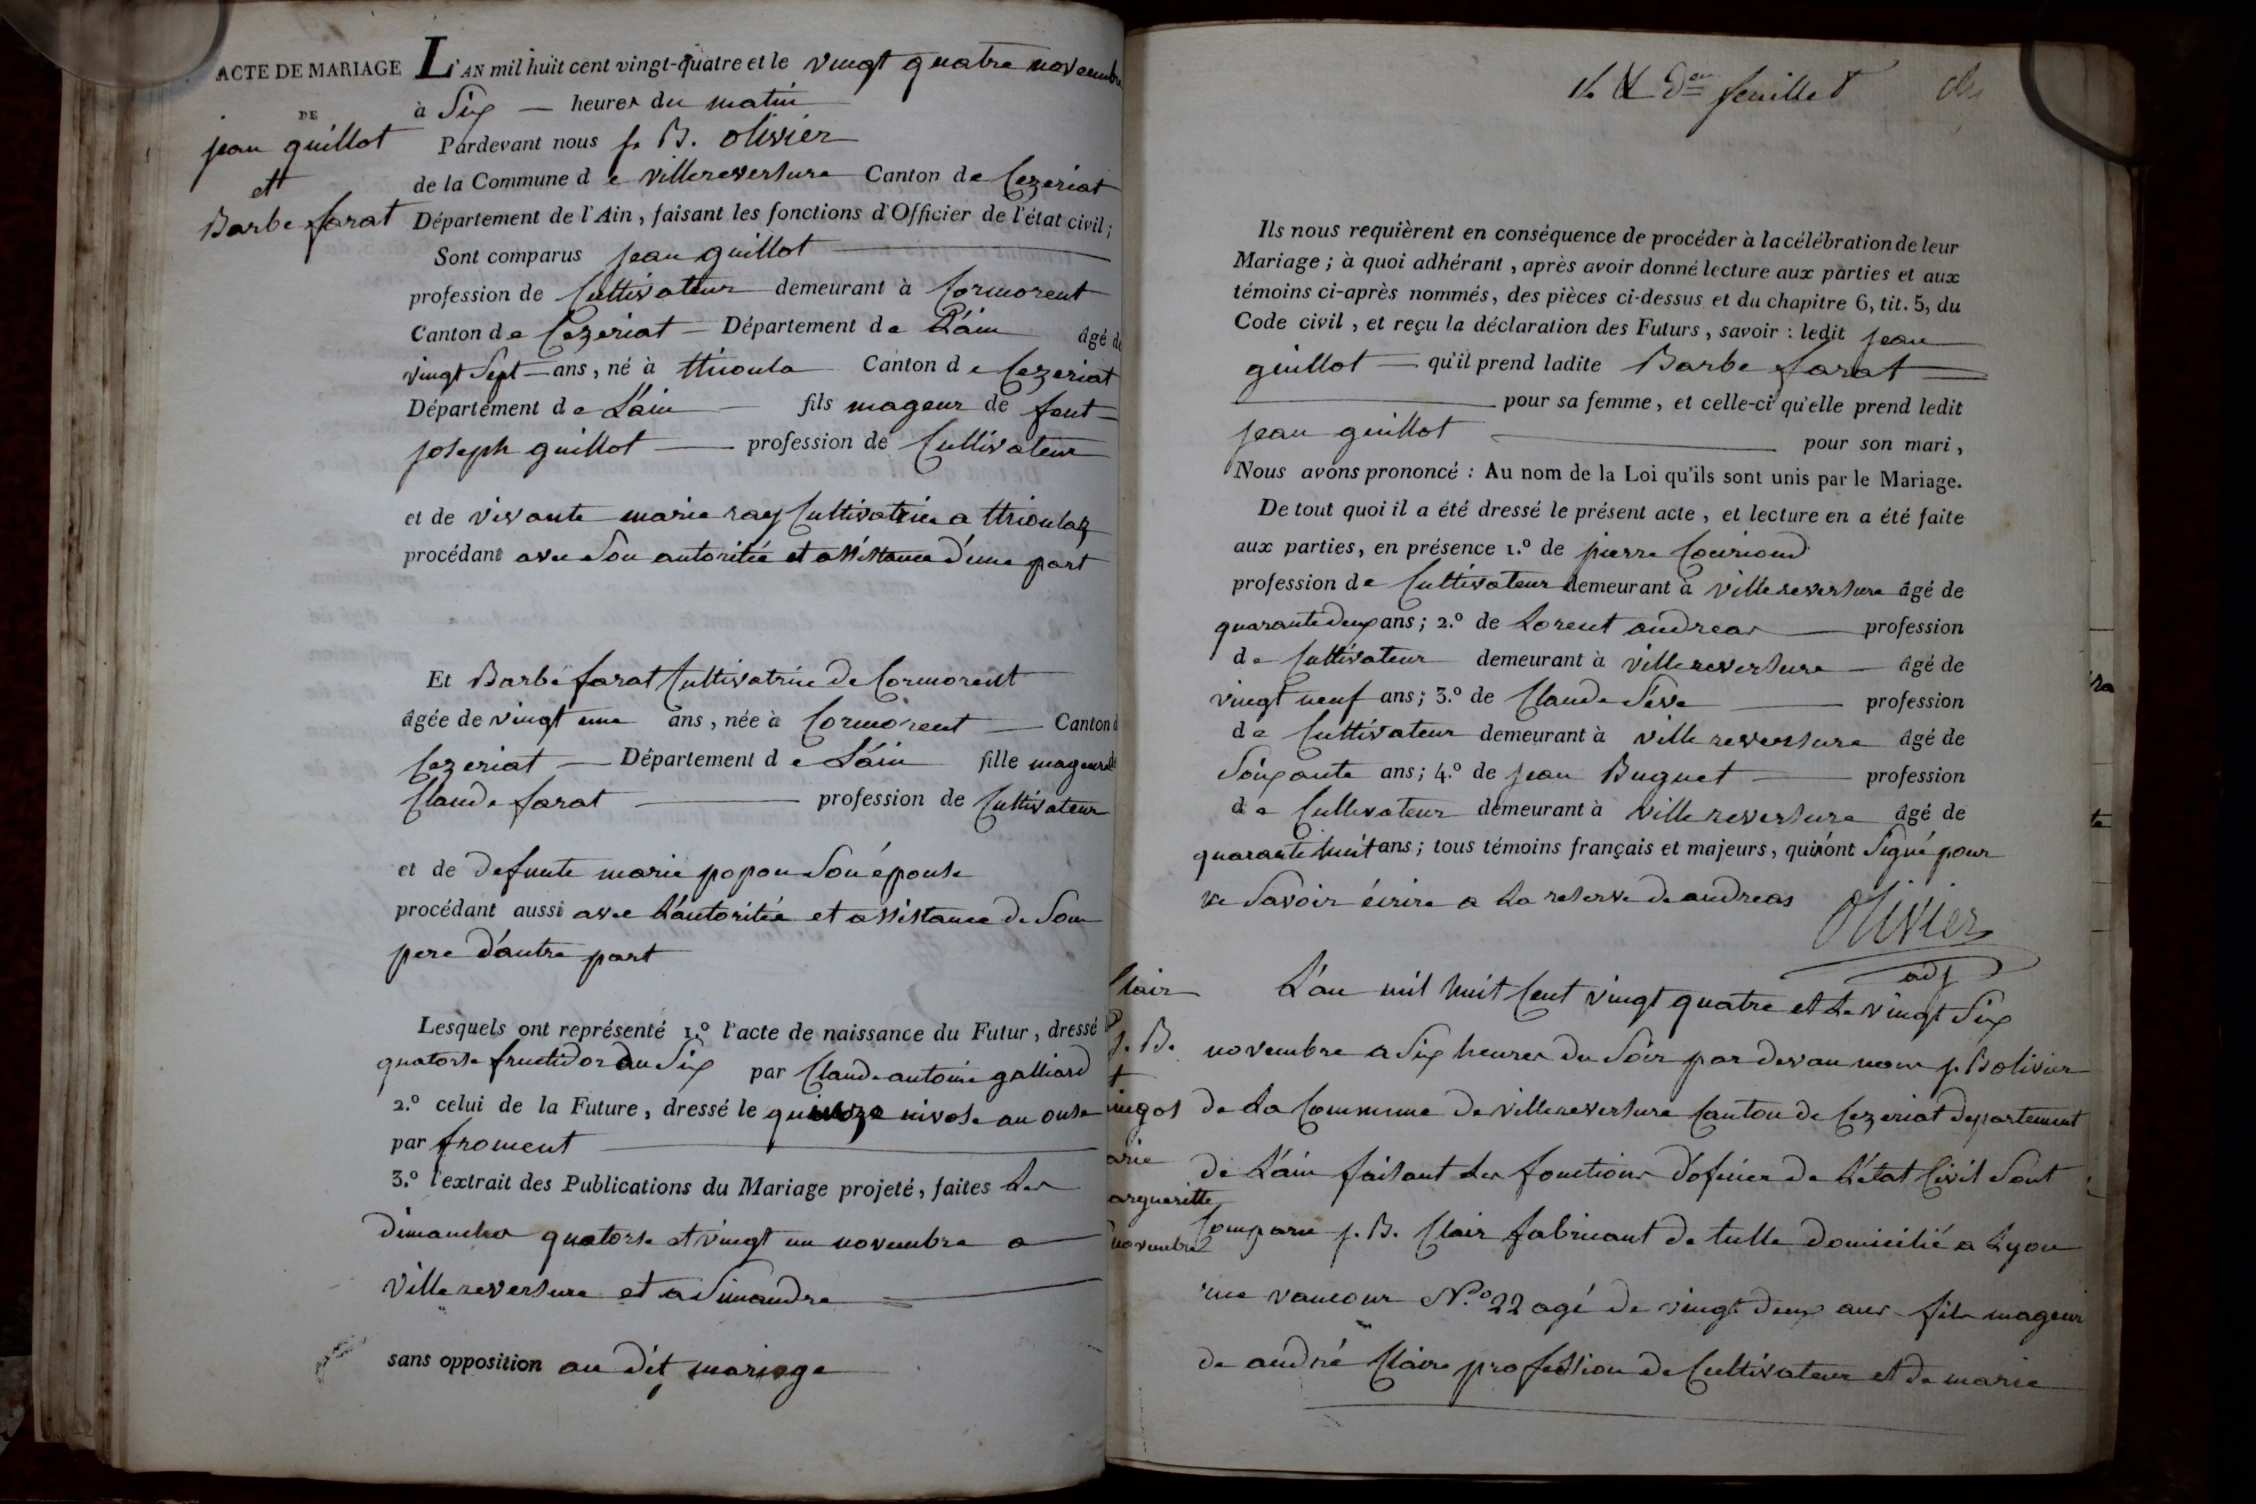 ACTE DE MARIAGE
DE
jean guillot
et
Barbe farat
L'AN mil huit cent vingt-quatre et le vingt quatre novembre
à Six — heures du matin
Pardevant nous j. B. olivier
de la Commune de villereversure Canton de Cezeriat
Département de l'Ain, faisant les fonctions d'Officier de l'état civil;
Sont comparus jean guillot
profession de Cultivateur demeurant à Cormorent
Canton de Cezeriat — Département de L'ain âgé de
vingt Sept — ans, né à thioula Canton de Cezeriat
Département de L'ain — fils mageur de feut
joseph guillot — profession de Cultivateur
et de vivante marie ray Cultivatrice a thioulaz
procédant avec Son autoritée et assistance d'une part
Et Barbe farat Cultivatrice de Cormorent
âgée de vingt une ans, née à Cormorent — Canton d
Cezeriat — Département de L'ain fille mageure de
Claude farat — profession de Cultivateur
et de defunte marie popon Son épouse
procédant aussi avec L'autoritée et assistance de Son
pere d'autre part
Lesquels ont représenté 1.º l'acte de naissance du Futur, dressé
quatorse fructidor an Six par Claude antoine galliard
2.º celui de la Future, dressé le quinze nivose an onse
par froment
3.º l'extrait des Publications du Mariage projeté, faites Les
dimanches quatorse et vingt un novembre a
villereversure et a Simandre
sans opposition au dit mariage
feuillet
Ils nous requièrent en conséquence de procéder à la célébration de leur
Mariage; à quoi adhérant, après avoir donné lecture aux parties et aux
témoins ci-après nommés, des pièces ci-dessus et du chapitre 6, tit. 5, du
Code civil, et reçu la déclaration des Futurs, savoir: ledit jean
guillot — qu'il prend ladite Barbe farat
pour sa femme, et celle-ci qu'elle prend ledit
jean guillot — pour son mari,
Nous avons prononcé: Au nom de la Loi qu'ils sont unis par le Mariage.
De tout quoi il a été dressé le présent acte, et lecture en a été faite
aux parties, en présence 1.º de pierre
profession de Cultivateur demeurant à villereversure âgé de
quarante deux ans; 2.º de Lorent andreas — profession
de Cultivateur demeurant à villereversure — âgé de
vingt neuf ans; 3.º de Claude Séve — profession
de Cultivateur demeurant à villereversure âgé de
Soixante ans; 4.º de jean Buguet — profession
de Cultivateur demeurant à villereversure âgé de
quarante huit ans; tous témoins français et majeurs, qui n'ont Signé pour
ne Savoir écrire a La reserve de andreas
Olivier
adj
Clair
j. B.
et
arie
argueritte
novembre
L'an mil huit Cent vingt quatre et Le vingt Six
novembre a Six heures du Soir par devan nous j. B olivier
de La Commune de villereversure Canton de Cezeriat departement
de L'ain faisant Les fonctions d'oficier de L'état Civil Sont
Comparu j. B. Clair fabricant de tulle domicilié a Lyon
rue vaucour N.º 22 agé de vingt deux ans fils mageur
de andré Claire profession de Cultivateur et de marie